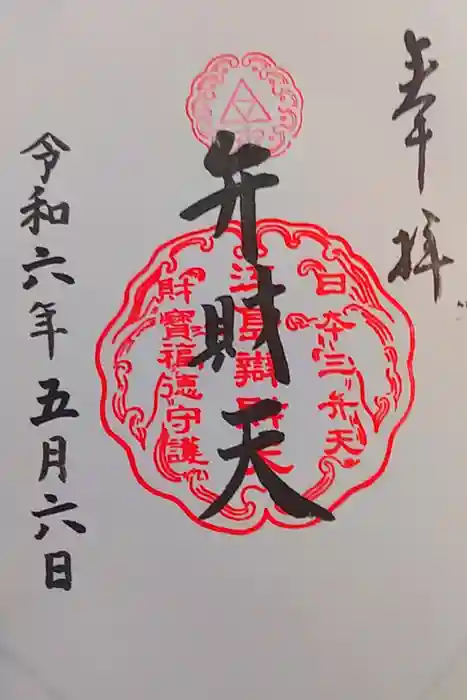 奉拝
日本三弁天
江島辯財天
財寳福徳守護
弁財天
令和六年五月六日